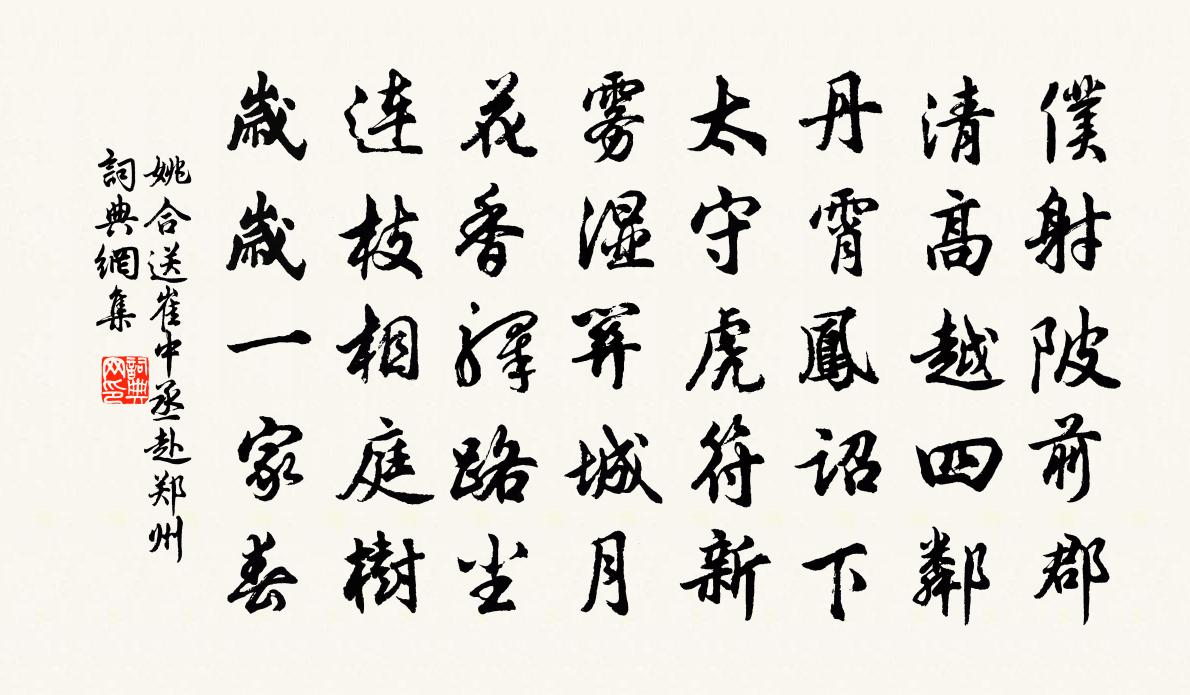 僕射陂前郡
清高越四鄰
丹霄鳳詔下
太守虎符新
雾湿關城月
花香驛路尘
連枝相庭樹
歲歲一家春
姚合送崔中丞赴郑州
詞典網集
詞典网印